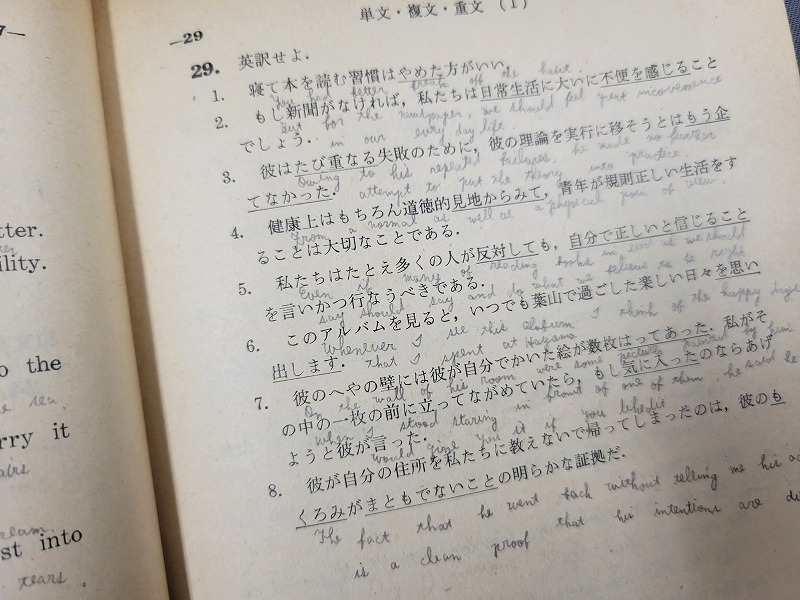 単文・複文・重文 (1)
—29
29. 英訳せよ.
1. 寝て本を読む習慣はやめた方がいい.
You had better break off the habit
2. もし新聞がなければ, 私たちは日常生活に大いに不便を感じること
But for the newspaper, we should feel great inconvenience
でしょう.
in our every day life
3. 彼はたび重なる失敗のために, 彼の理論を実行に移そうとはもう企
Owing to his repeated failures, he made no further
てなかった.
attempt to put the theory into practice.
4. 健康上はもちろん道徳的見地からみて, 青年が規則正しい生活をす
From a normal as well as a physical point of view,
ることは大切なことである.
5. 私たちはたとえ多くの人が反対しても, 自分で正しいと信じること
Even if many of reading books in
を言いかつ行なうべきである.
say should say and do what we believe to be right
6. このアルバムを見ると, いつでも葉山で過ごした楽しい日々を思い
Whenever I see this I think of the happy days
出します.
that I spent at Hayama
7. 彼のへやの壁には彼が自分でかいた絵が数枚はってあった. 私がそ
On the wall of his room were some painted by him
の中の一枚の前に立ってながめていたら, もし気に入ったのならあげ
when I stood staring in front of one of them, he said he
ようと彼が言った.
would give you it if you
8. 彼が自分の住所を私たちに教えないで帰ってしまったのは, 彼のも
くろみがまともでないことの明らかな証拠だ.
The fact that he went back without telling me his
is a clean proof that his intentions are
7—
tter.
ility.
o the
sea,
rry it
airs
ream.
st into
tears.